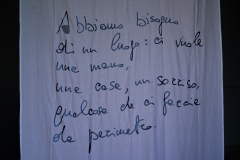 Abbiamo bisogno
di un luogo: ci vuole
una mano,
una casa, un sorriso,
qualcosa che ci faccia
da perimetro